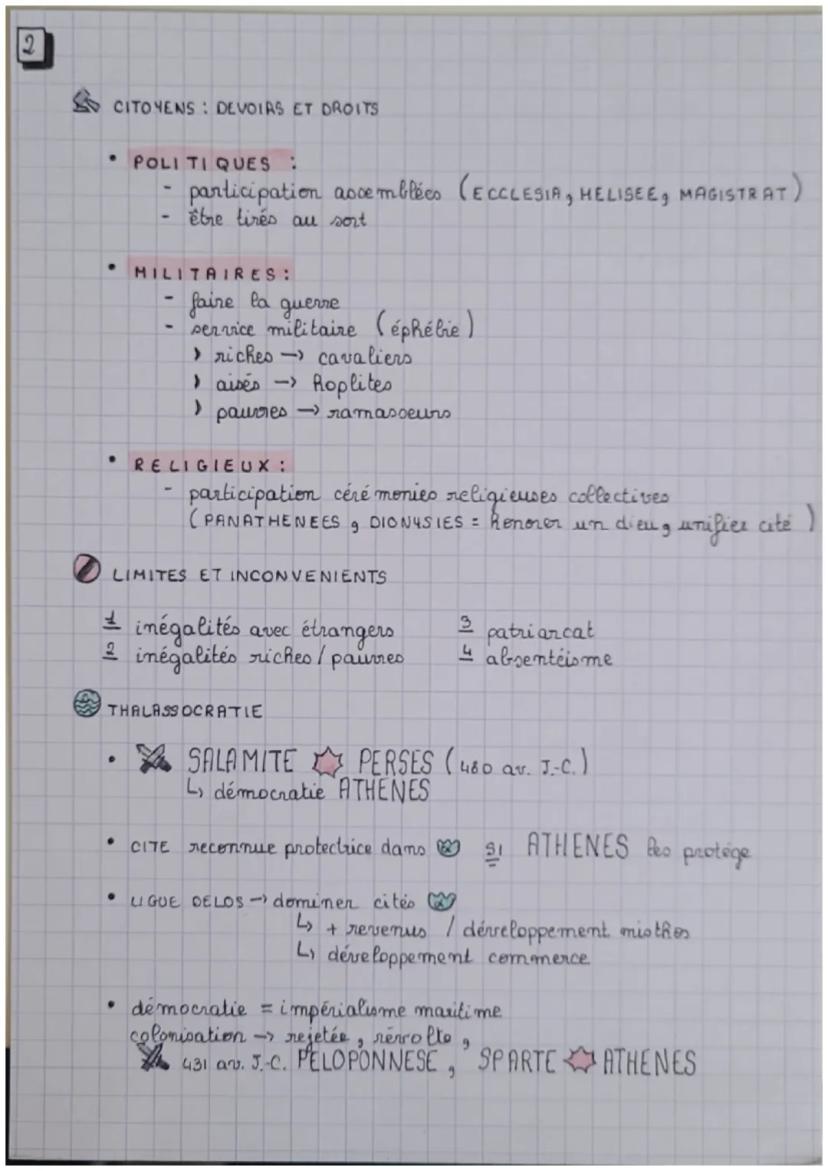 2
CITOYENS : DEVOIRS ET DROITS
• POLITIQUES :
- participation assemblées (ECCLESIA, HELISEE, MAGISTRAT)
- être tirés au sort
• MILITAIRES :
- faire la guerre
- service militaire (éphébie)
> riches → cavaliers
> aisés → hoplites
> pauvres → ramasseurs
• RELIGIEUX :
- participation cérémonies religieuses collectives
(PANATHENEES, DIONYSIES = honorer un dieu, unifier cité)
LIMITES ET INCONVENIENTS
1 inégalités avec étrangers
2 inégalités riches / pauvres
3 patriarcat
4 absentéisme
THALASSOCRATIE
• SALAMITE PERSES (480 av. J.-C.)
↳ démocratie ATHENES
• CITE reconnue protectrice dans SI ATHENES les protège
• LIGUE DELOS → dominer cités
↳ + revenus / développement misthos
↳ développement commerce
• démocratie = impérialisme maritime
colonisation → rejetée, révolte,
431 av. J.-C. PELOPONNESE, SPARTE ATHENES